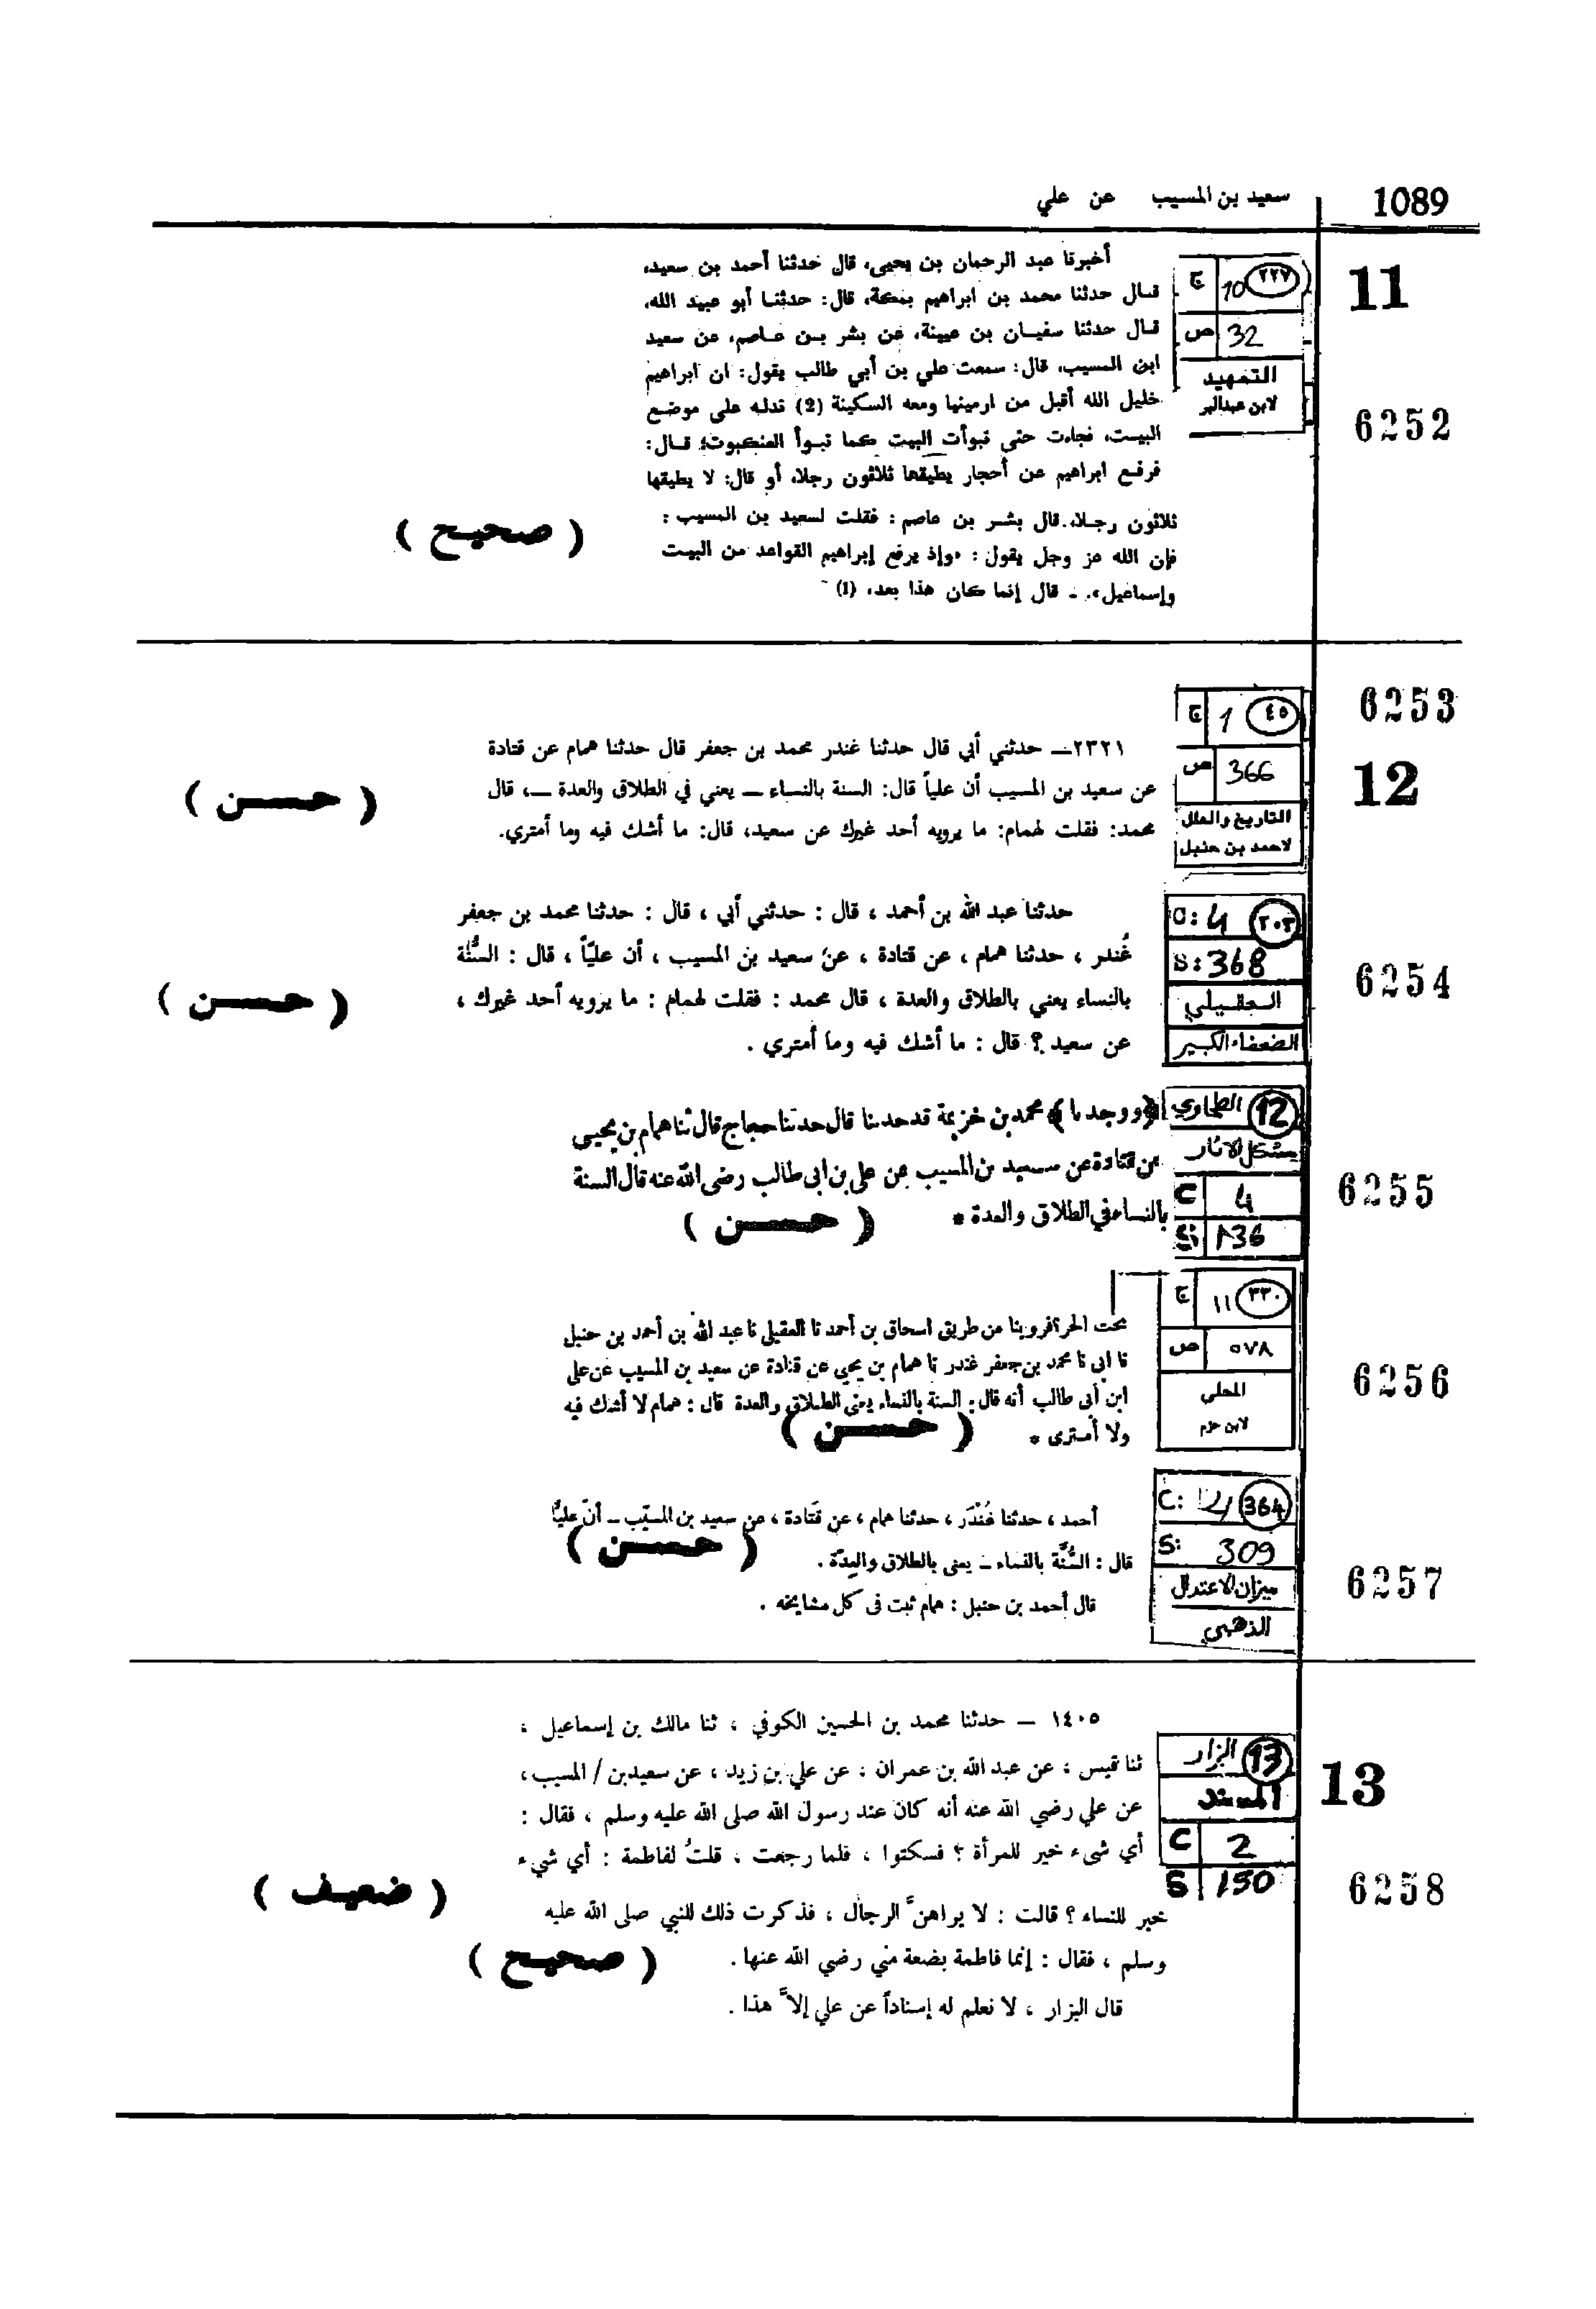 1089
سعيد بن المسيب عن علي
11
6252
ج 10 ٢٢٧
ص 32
التمهيد
لابن عبدالبر
أخبرنا عبد الرحمان بن يحيى، قال حدثنا أحمد بن سعيد،
قال حدثنا محمد بن ابراهيم بمكة، قال: حدثنا أبو عبيد الله،
قال حدثنا سفيان بن عيينة، عن بشر بن عاصم، عن سعيد
ابن المسيب، قال: سمعت علي بن أبي طالب يقول: ان ابراهيم
خليل الله أقبل من ارمينيا ومعه السكينة (2) تدله على موضع
البيت، فجاءت حتى تبوأت البيت كما تبوأ العنكبوت؛ قال:
فرفع ابراهيم عن أحجار يطيقها ثلاثون رجلا، أو قال: لا يطيقها
ثلاثون رجلا، قال بشر بن عاصم : فقلت لسعيد بن المسيب :
فإن الله عز وجل يقول : «وإذ يرفع إبراهيم القواعد من البيت
وإسماعيل». - قال إنما كان هذا بعد، (1)
( صحيح )
6253
12
ج 1 ٤٥
ص 366
التاريخ والعلل
لاحمد بن حنبل
٢٣٢١ــ حدثني أبي قال حدثنا غندر محمد بن جعفر قال حدثنا همام عن قتادة
عن سعيد بن المسيب أن علياً قال: السنة بالنساء ــ يعني في الطلاق والعدة ــ، قال
محمد: فقلت لهمام: ما يرويه أحد غيرك عن سعيد، قال: ما أشك فيه وما أمتري.
( حسن )
6254
C: 4 ٢٠٣
S: 368
العقيلي
الضعفاء الكبير
حدثنا عبد الله بن أحمد ، قال : حدثني أبي ، قال : حدثنا محمد بن جعفر
غُندر ، حدثنا همام ، عن قتادة ، عن سعيد بن المسيب ، أن عليّاً ، قال : السُّنَّة
بالنساء يعني بالطلاق والعدة ، قال محمد : فقلت لهمام : ما يرويه أحد غيرك ،
عن سعيد ؟ قال : ما أشك فيه وما أمتري .
( حسن )
6255
12 الطحاوي
مشكل الاثار
C 4
S 136
﴿ووجدنا﴾ محمد بن خزيمة قد حدثنا قال حدثنا حجاج قال ثنا همام بن يحيى
عن قتادة عن سعيد بن المسيب عن علي بن ابى طالب رضى الله عنه قال السنة
بالنساء في الطلاق والعدة *
( حسن )
6256
ج ١١ ٣٣٠
ص ٥٧٨
المحلى
لابن حزم
تحت الحر؟ فروينا من طريق اسحاق بن أحمد نا العقيلى نا عبد الله بن أحمد بن حنبل
نا ابى نا محمد بن جعفر غندر نا همام بن يحيى عن قتادة عن سعيد بن المسيب عن على
ابن أبى طالب أنه قال : السنة بالنساء يعنى الطلاق والعدة قال : همام لا أشك فيه
ولا أمترى *
( حسن )
6257
C: 4 364
S: 309
ميزان الاعتدال
الذهبي
أحمد ، حدثنا غُنْدَر ، حدثنا همام ، عن قَتادة ، عن سعيد بن المسيّب ــ أنّ عليًّا
قال : السُّنَّة بالنساء ــ يعنى بالطلاق والعِدَّة .
قال أحمد بن حنبل : همام ثبت فى كل مشايخه .
( حسن )
13
6258
13 البزار
المسند
C 2
S 150
١٤٠٥ ــ حدثنا محمد بن الحسين الكوفي ، ثنا مالك بن إسماعيل ،
ثنا قيس ، عن عبد الله بن عمران ، عن علي بن زيد ، عن سعيد بن / المسيب ،
عن علي رضي الله عنه أنه كان عند رسول الله صلى الله عليه وسلم ، فقال :
أي شىء خير للمرأة ؟ فسكتوا ، فلما رجعت ، قلتُ لفاطمة : أي شىء
خير للنساء ؟ قالت : لا يراهنَّ الرجال ، فذكرت ذلك للنبي صلى الله عليه
وسلم ، فقال : إنما فاطمة بضعة مني رضي الله عنها .
قال البزار ، لا نعلم له إسناداً عن علي إلاَّ هذا .
( ضعيف )
( صحيح )